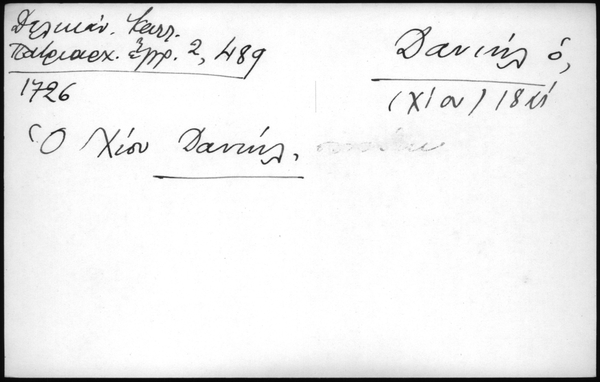 Δελικάν. Καλλ.
Πατριαρχ. Ἔγγρ. 2, 489
1726
Δανιήλ ὁ,
(Χίου) 18
Ὁ Χίου Δανιήλ.